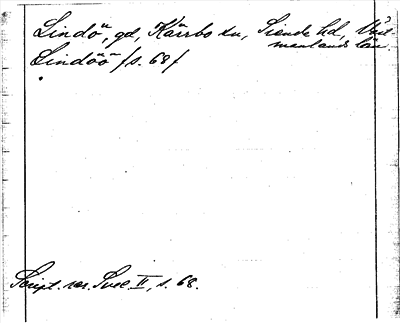 Lindö, gd, Kärrbo sn, Siende hd, Väst-
manlands län.
Lindöö /s. 68/
Script. rer. Svec. II, s. 68.